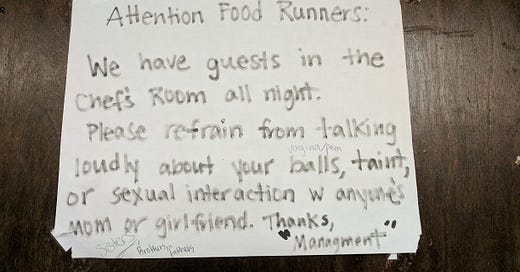 Attention Food Runners:
We have guests in the
Chef's Room all night.
Please refrain from talking
vagina/peen
loudly about your balls, taint,
or sexual interaction w anyone's
mom or girlfriend. Thanks,
sisters Brothers, fathers
"Managment"